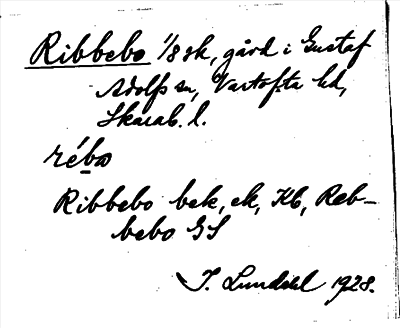 Ribbebo 1/8 sk, gård i Gustaf
Adolfs sn, Vartofta hd,
Skarab. l.
rébo
Ribbebo bek, ek, Kb, Reb-
bebo GS
I. Lundahl 1928.